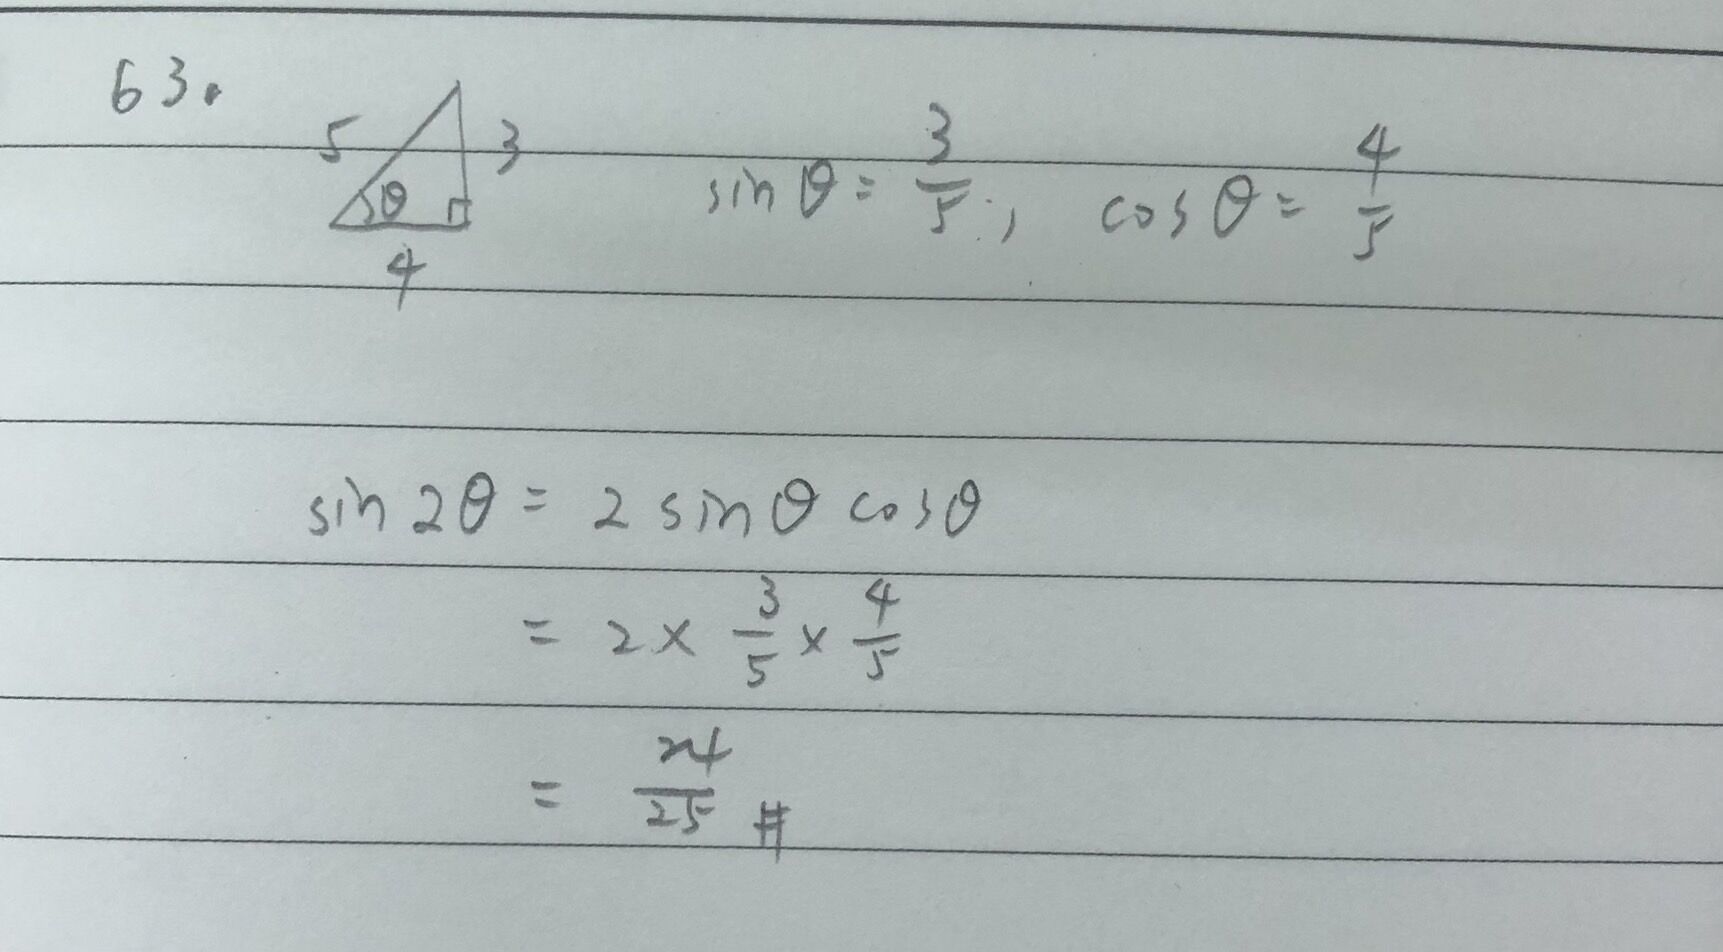 63.
5 3 θ 4
sin θ = 3/5, cos θ = 4/5
sin 2θ = 2 sin θ cos θ
= 2 × 3/5 × 4/5
= 24/25 #